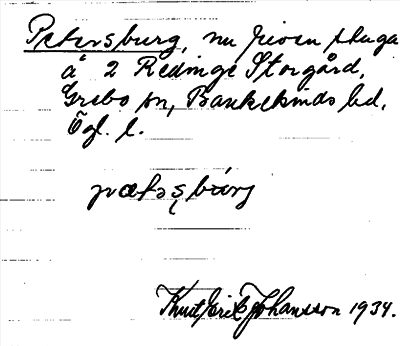 Petersburg, nu riven stuga
å 2 Redinge Storgård,
Grebo sn, Bankekinds hd,
Ögl. l.
pætəʂbùrj
Knut Erik Johansson 1934.